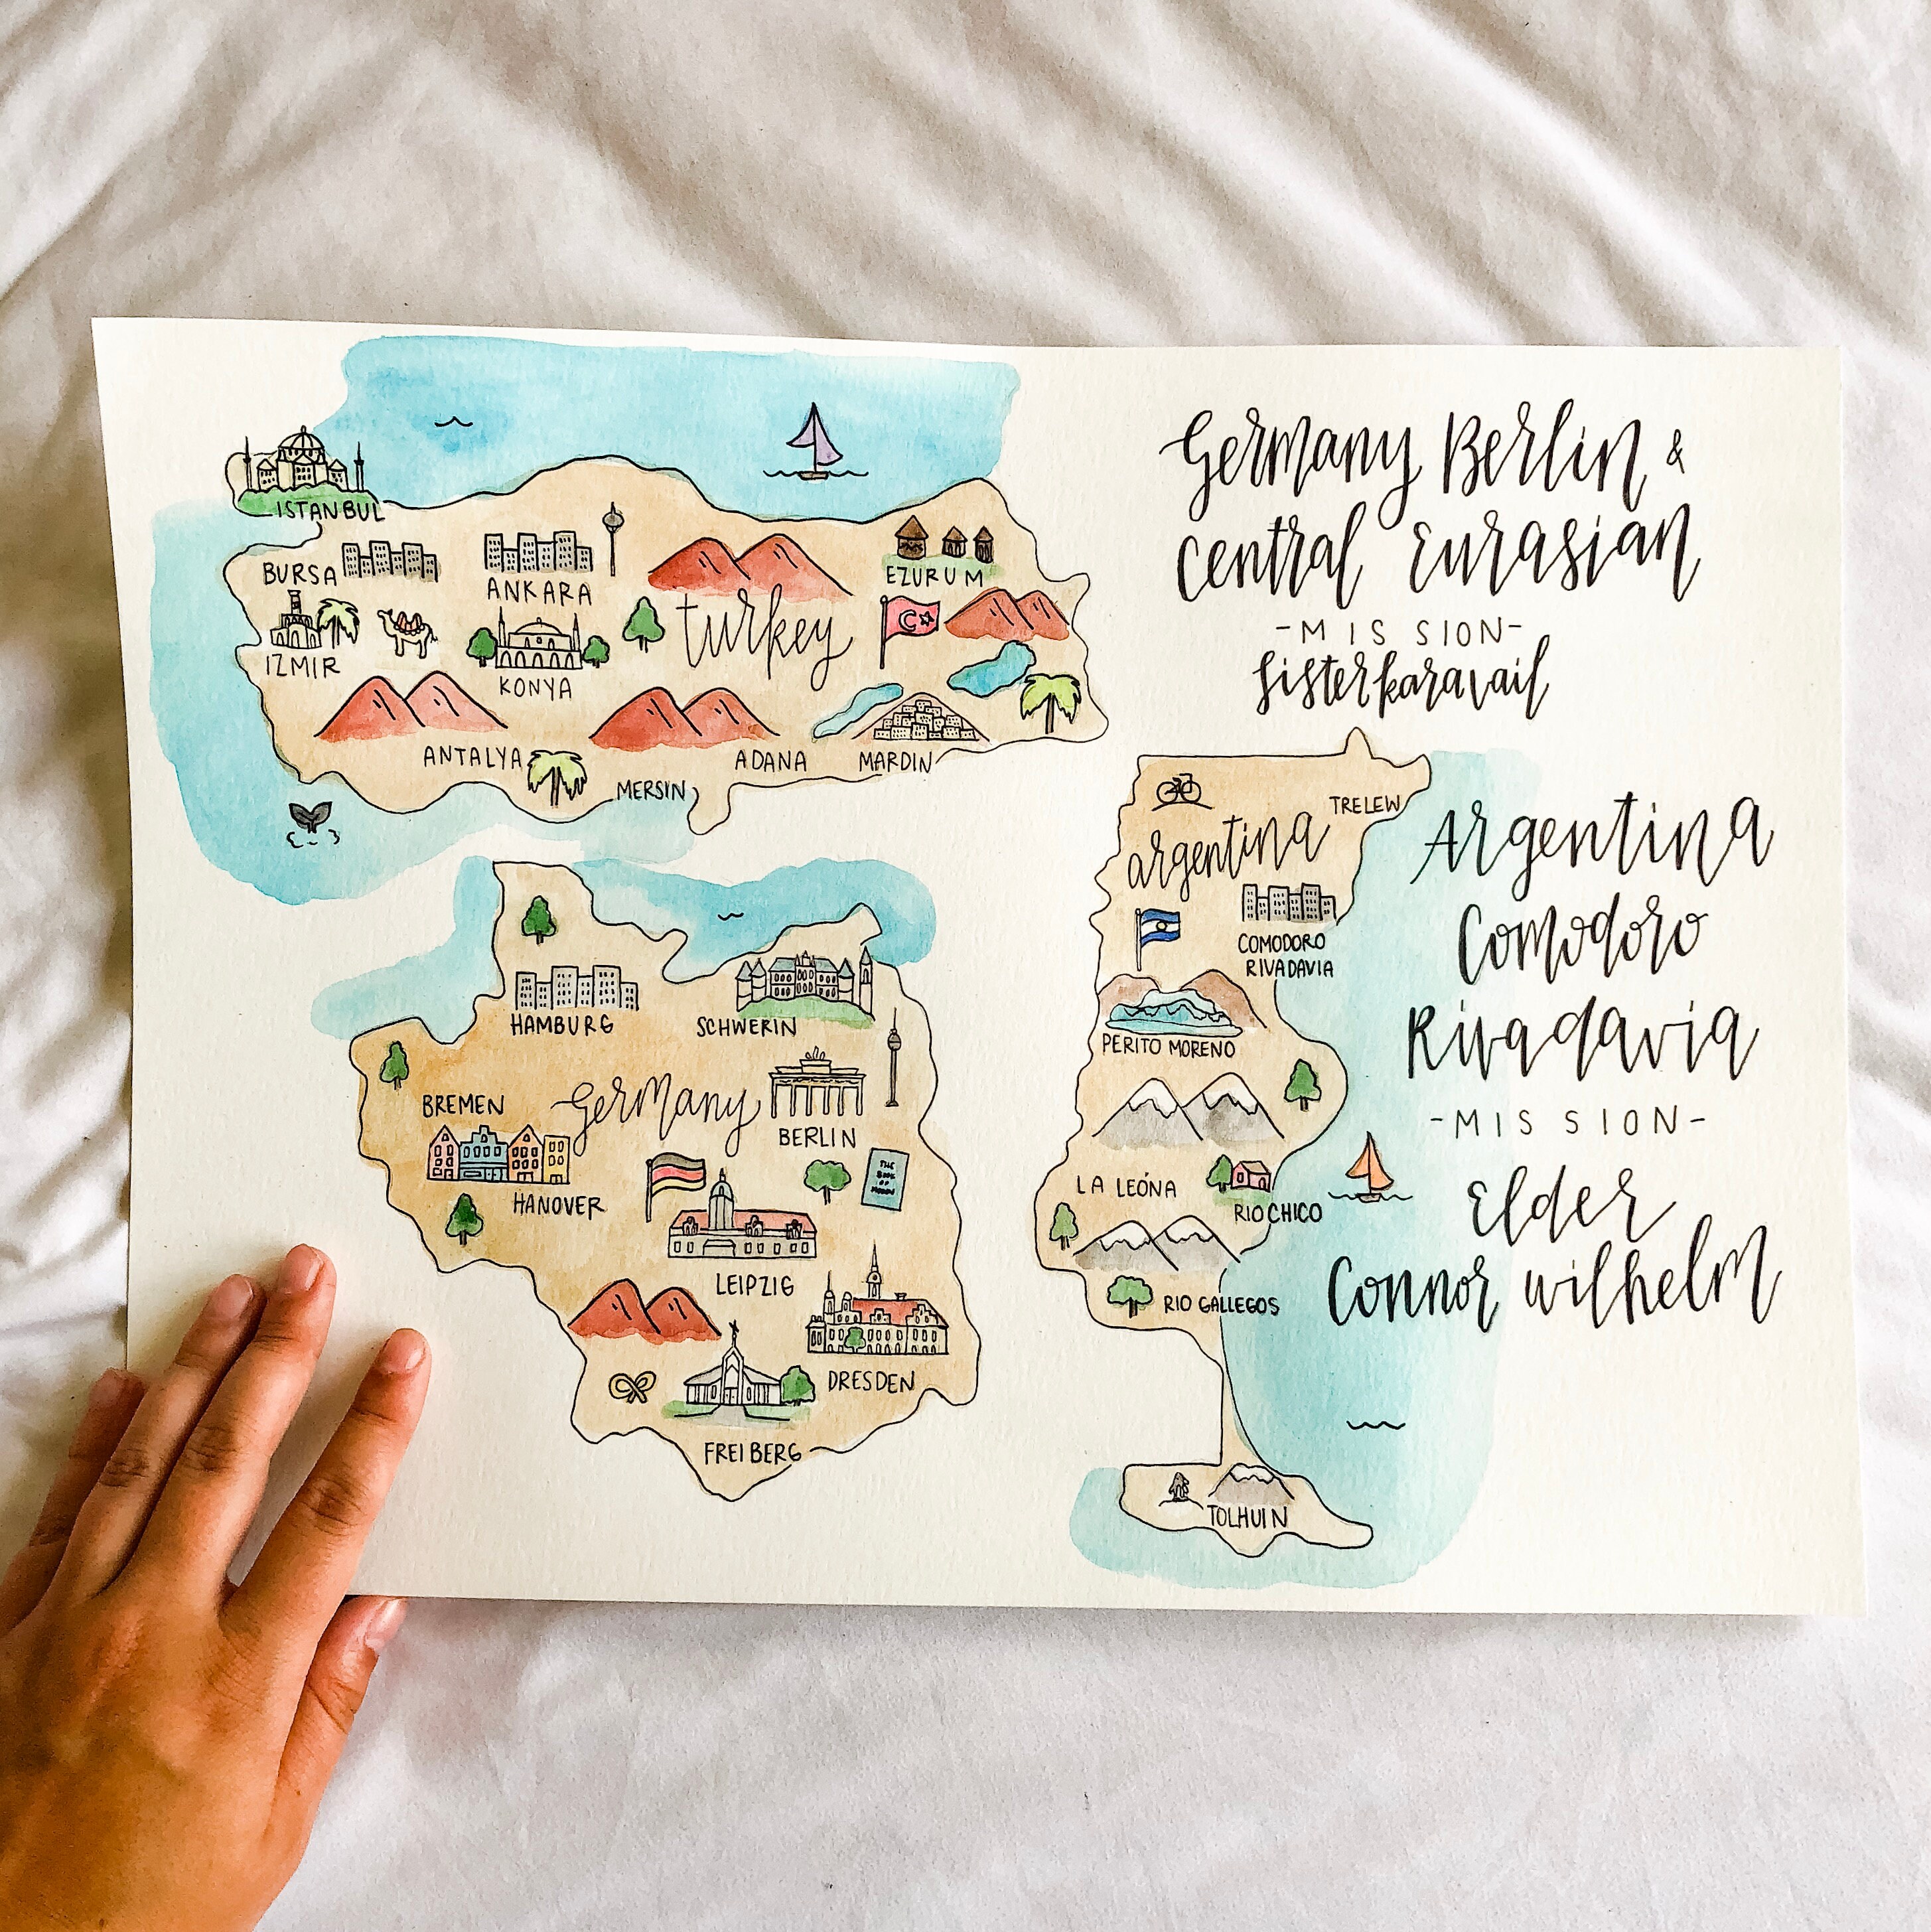 Germany Berlin &
Central Eurasian
-MISSION-
Sister Karavail
ISTANBUL
BURSA
ANKARA
EZURUM
turkey
IZMIR
KONYA
ANTALYA
ADANA
MARDIN
MERSIN
HAMBURG
SCHWERIN
BREMEN
Germany
BERLIN
THE
BOOK
OF
MORMON
HANOVER
LEIPZIG
DRESDEN
FREIBERG
TRELEW
argentina
COMODORO
RIVADAVIA
PERITO MORENO
LA LEÓNA
RIO CHICO
RIO GALLEGOS
TOLHUIN
Argentina
Comodoro
Rivadavia
-MISSION-
Elder
Connor Wilhelm